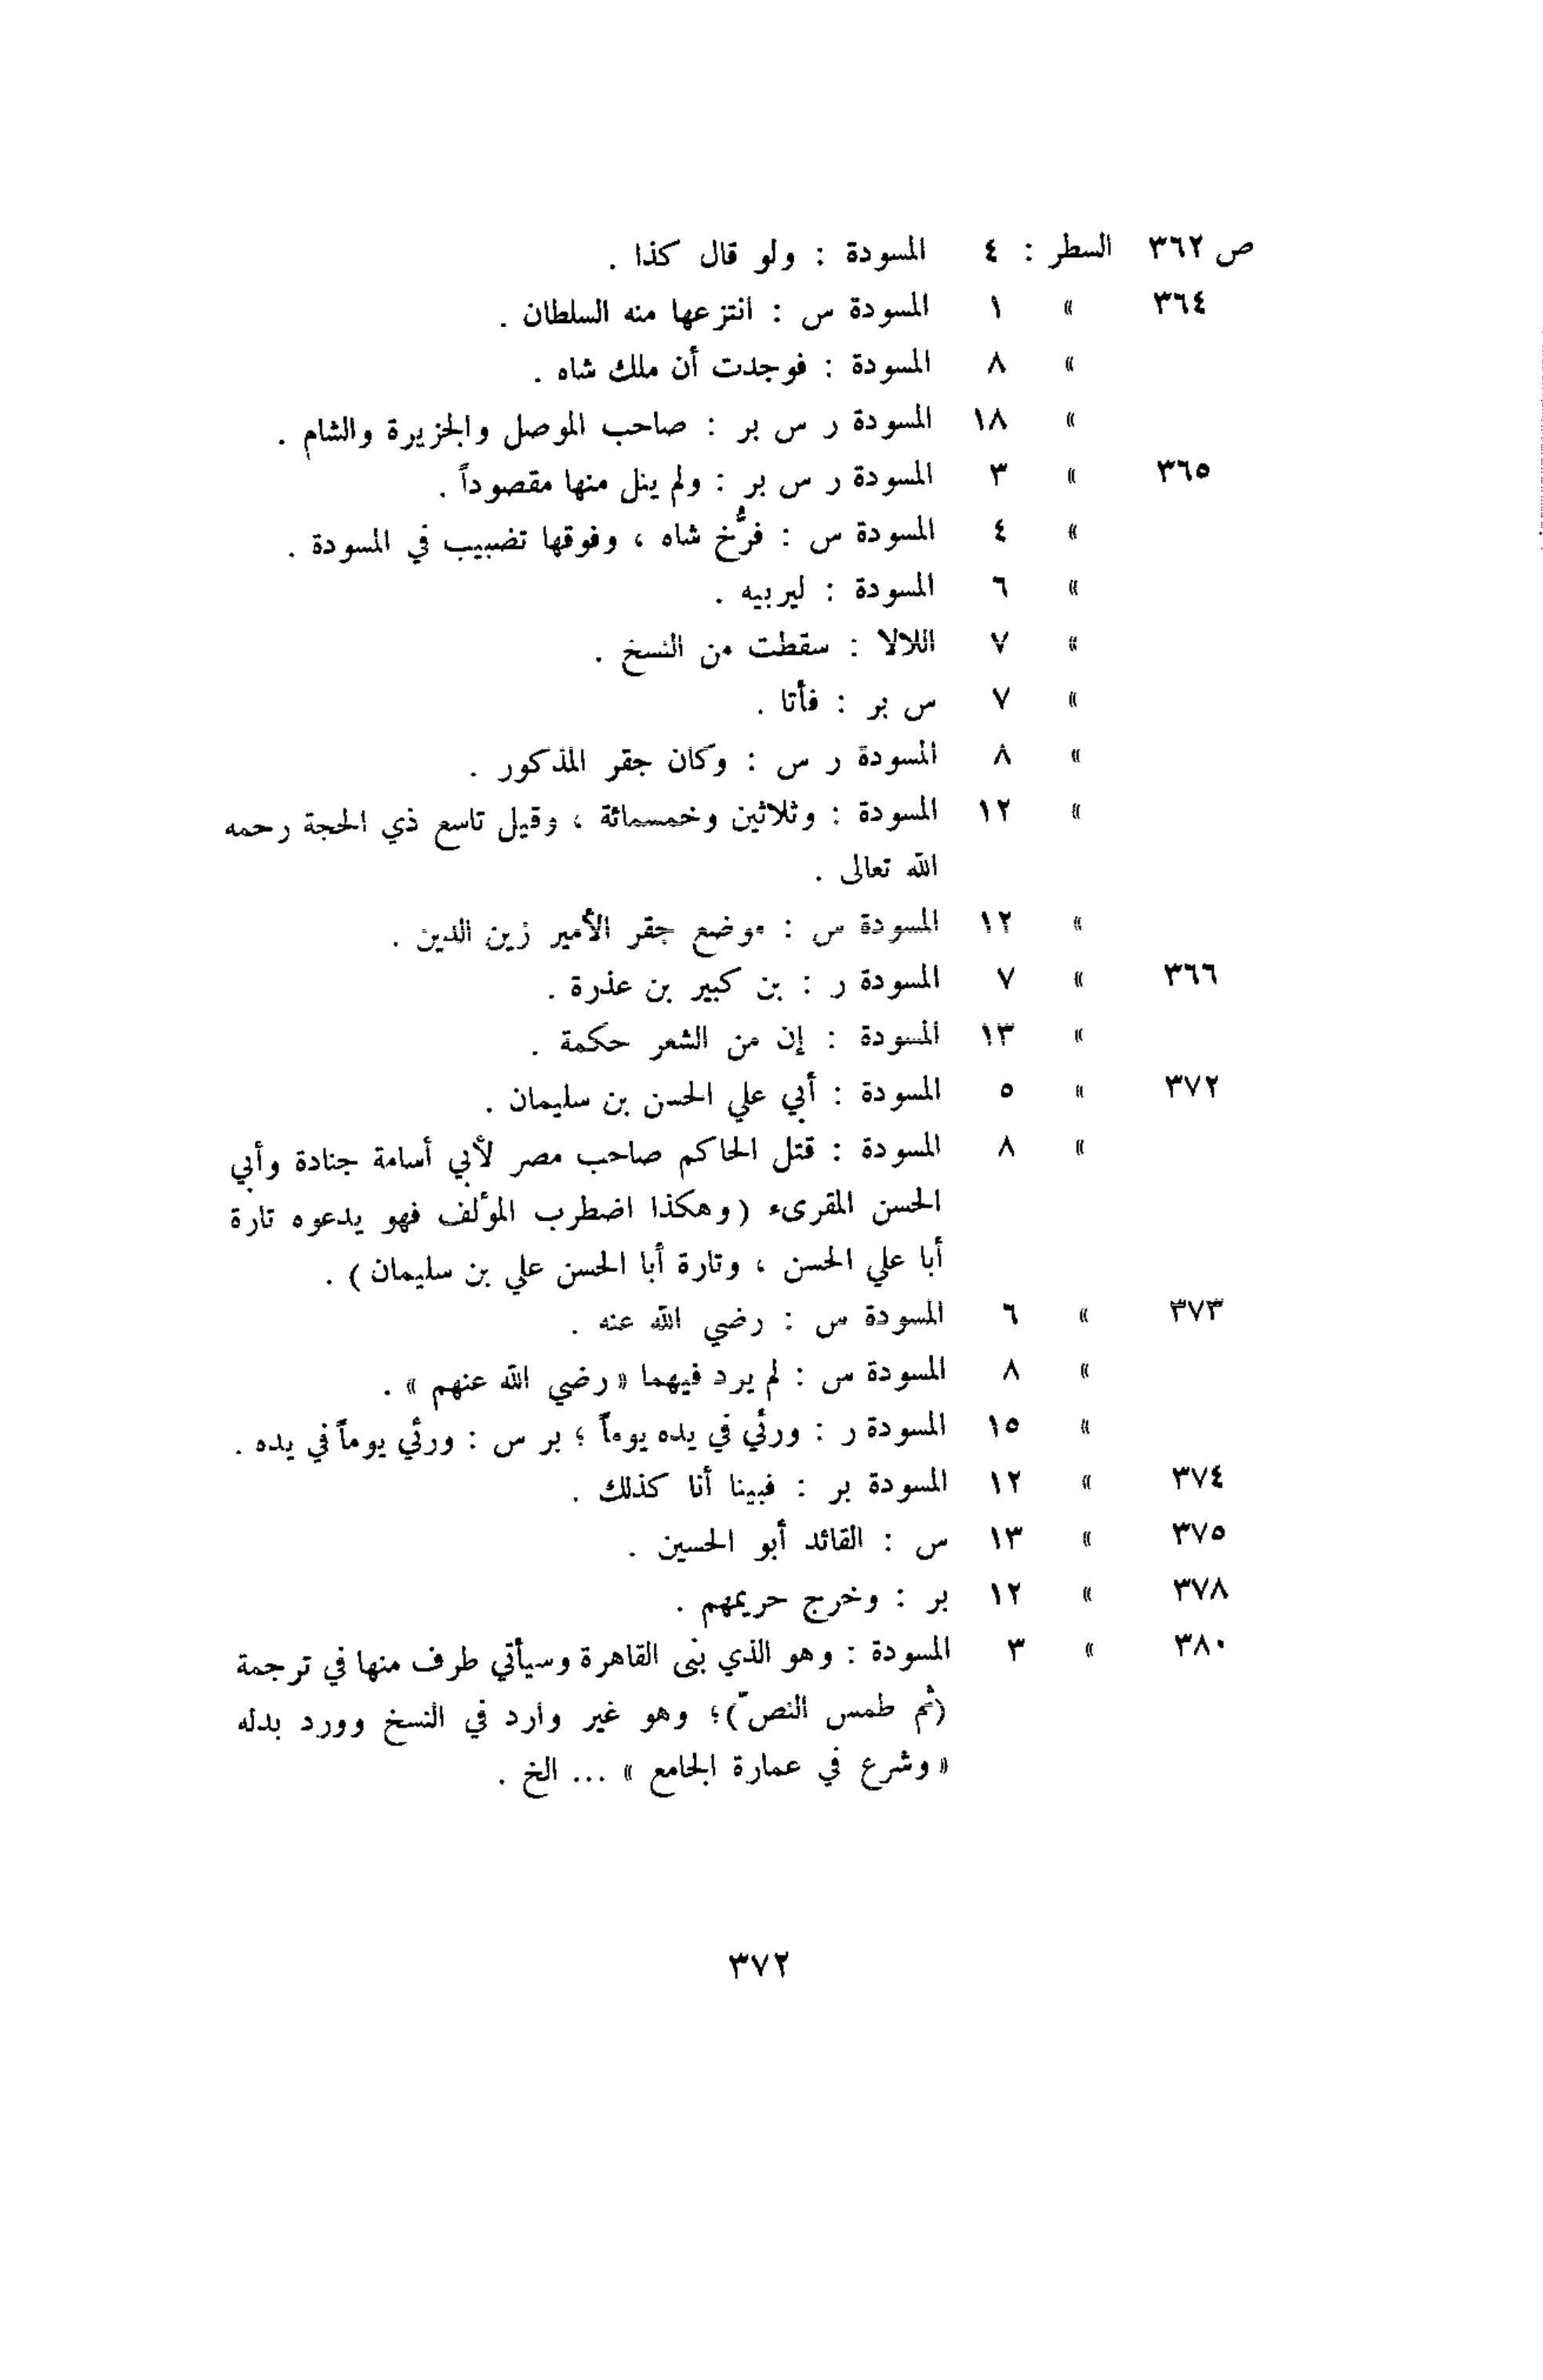 ص ٣٦٢ السطر : ٤ المسودة : ولو قال كذا .
٣٦٤ » ١ المسودة س : انتزعها منه السلطان .
» ٨ المسودة : فوجدت أن ملك شاه .
» ١٨ المسودة ر س بر : صاحب الموصل والجزيرة والشام .
٣٦٥ » ٣ المسودة ر س بر : ولم ينل منها مقصوداً .
» ٤ المسودة س : فرُّخ شاه ، وفوقها تضبيب في المسودة .
» ٦ المسودة : ليربيه .
» ٧ اللالا : سقطت من النسخ .
» ٧ س بر : فأتا .
» ٨ المسودة ر س : وكان جقر المذكور .
» ١٢ المسودة : وثلاثين وخمسمائة ، وقيل تاسع ذي الحجة رحمه
الله تعالى .
» ١٢ المسودة س : موضع جقر الأمير زين الدين .
٣٦٦ » ٧ المسودة ر : بن كبير بن عذرة .
» ١٣ المسودة : إن من الشعر حكمة .
٣٧٢ » ٥ المسودة : أبي علي الحسن بن سليمان .
» ٨ المسودة : قتل الحاكم صاحب مصر لأبي أسامة جنادة وأبي
الحسن المقرىء (وهكذا اضطرب المؤلف فهو يدعوه تارة
أبا علي الحسن ، وتارة أبا الحسن علي بن سليمان) .
٣٧٣ » ٦ المسودة س : رضي الله عنه .
» ٨ المسودة س : لم يرد فيهما « رضي الله عنهم » .
» ١٥ المسودة ر : ورئي في يده يوماً ؛ بر س : ورئي يوماً في يده .
٣٧٤ » ١٢ المسودة بر : فبينا أنا كذلك .
٣٧٥ » ١٣ س : القائد أبو الحسين .
٣٧٨ » ١٢ بر : وخرج حريمهم .
٣٨٠ » ٣ المسودة : وهو الذي بنى القاهرة وسيأتي طرف منها في ترجمة
(ثم طمس النصّ)؛ وهو غير وارد في النسخ وورد بدله
« وشرع في عمارة الجامع » ... الخ .
٣٧٢